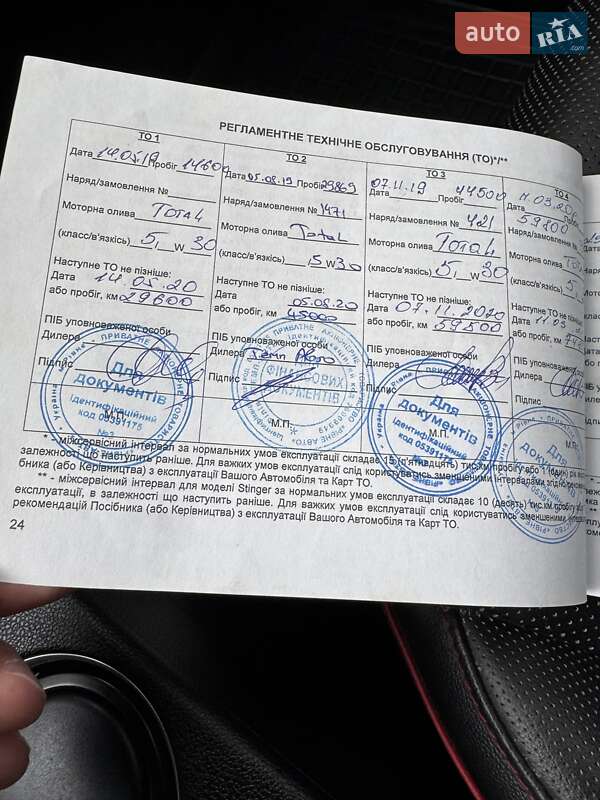 auto RIA .com
РЕГЛАМЕНТНЕ ТЕХНІЧНЕ ОБСЛУГОВУВАННЯ (ТО)*/**
ТО 1
Дата 14.05.19 Пробіг 14600
Наряд/замовлення №
Моторна олива TOTAL
(класс/в'язкість) 5, W 30
Наступне ТО не пізніше:
Дата 14.05.20
або пробіг, км 29600
ПІБ уповноваженої особи
Дилера
Підпис
М.П.
ТО 2
Дата 05.08.19 Пробіг 29869
Наряд/замовлення № 1471
Моторна олива Total
(класс/в'язкість) 5 W 30
Наступне ТО не пізніше:
Дата 05.08.20
або пробіг, км 45000
ПІБ уповноваженої особи
Дилера
Підпис
М.П.
ТО 3
07.11.19 44500
Дата Пробіг
Наряд/замовлення № 421
Моторна олива TOTAL
(класс/в'язкість) 5, W 30
Наступне ТО не пізніше:
Дата 07.11.2020
або пробіг, км 59500
ПІБ уповноваженої особи
Дилера
Підпис
М.П.
ТО 4
11.03.20
Дата
59800
Наряд/замовлення
Моторна олива
(класс/в'язкість) 5,
Наступне ТО не
Дата 11.03
або пробіг, км
ПІБ уповноваженої
Дилера
Підпис
Для
документів
Ідентифікаційний
код 05391175
№2
ФІНАНСОВИХ
ДОКУМЕНТІВ
Для
документів
Ідентифікаційний
* - міжсервісний інтервал за нормальних умов експлуатації складає 15 (п'ятнадцять) тис.км пробігу або 1 (один) рік в
залежності що наступить раніше. Для важких умов експлуатації слід користуватись зменшеними інтервалами згідно
бника (або Керівництва) з експлуатації Вашого Автомобіля та Карт ТО.
** - міжсервісний інтервал для моделі Stinger за нормальних умов експлуатації складає 10 (десять) тис.км пробігу
експлуатації, в залежності що наступить раніше. Для важких умов експлуатації слід користуватись зменшеними
рекомендацій Посібника (або Керівництва) з експлуатації Вашого Автомобіля та Карт ТО.
24